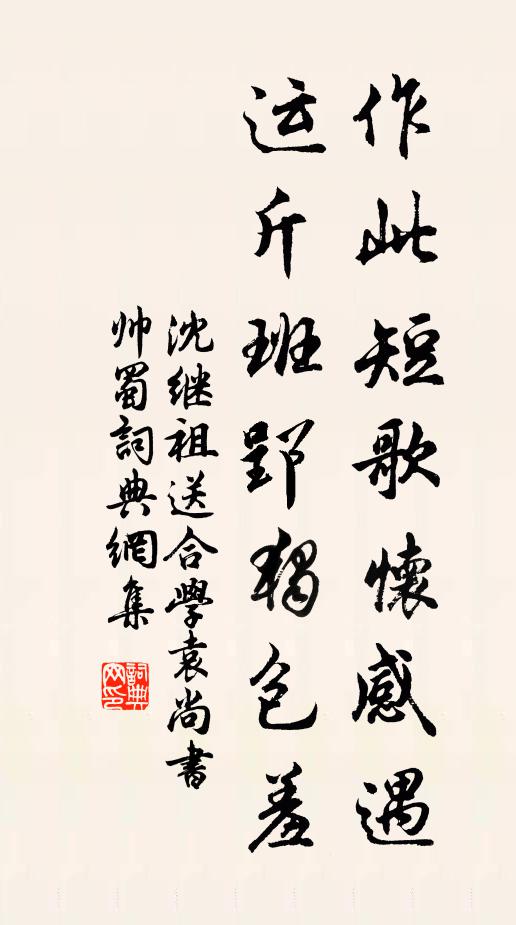 作此短歌懷感遇
运斤班郢獨包羞
沈继祖送合學袁尚書
帅蜀詞典網集
詞典网印